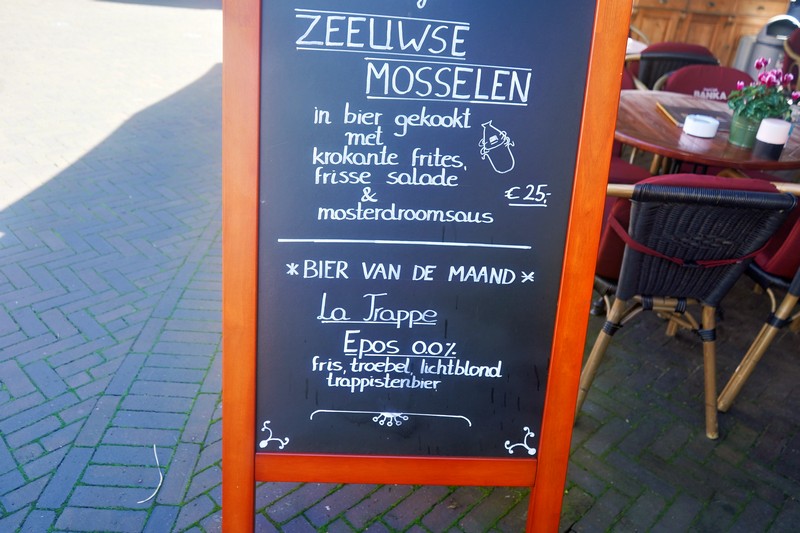 ZEEUWSE
MOSSELEN
in bier gekookt
met
krokante frites,
frisse salade
&
mosterdroomsaus
€ 25,-
*BIER VAN DE MAAND*
La Trappe
Epos 0.0%
fris, troebel, lichtblond
trappistenbier
BANKA